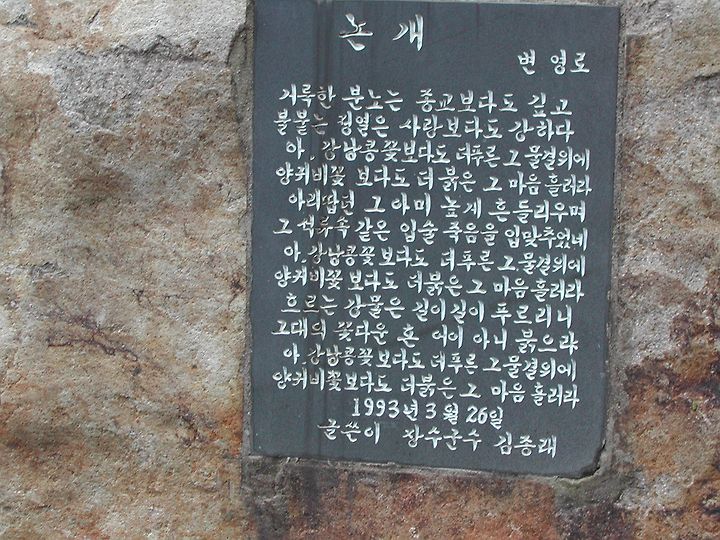 논개
변영로
거룩한 분노는 종교보다도 깊고
불붙는 정열은 사랑보다도 강하다
아, 강낭콩꽃보다도 더푸른 그 물결위에
양귀비꽃 보다도 더 붉은 그 마음 흘러라
아리땁던 그 아미 높게 흔들리우며
그 석류속 같은 입술 죽음을 입맞추었네
아, 강낭콩꽃보다도 더푸른 그 물결위에
양귀비꽃 보다도 더붉은 그 마음 흘러라
흐르는 강물은 길이길이 푸르리니
그대의 꽃다운 혼 어이 아니 붉으랴
아, 강낭콩꽃보다도 더푸른 그 물결위에
양귀비꽃보다도 더붉은 그 마음 흘러라
1993년 3월 26일
글쓴이 장수군수 김종래